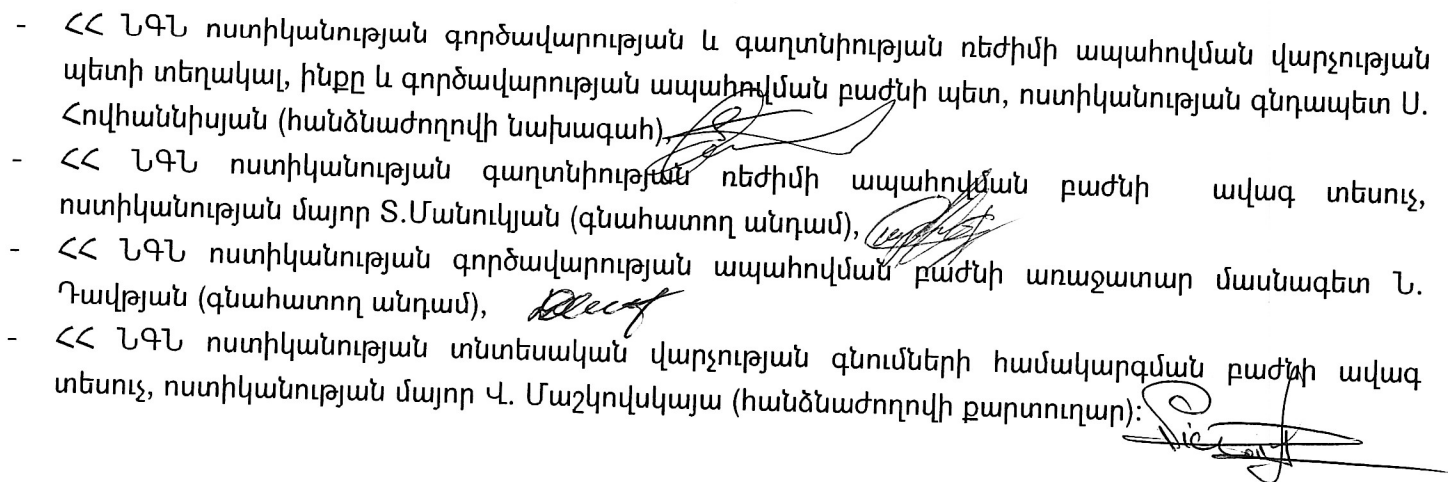 - ՀՀ ՆԳՆ ոստիկանության գործավարության և գաղտնիության ռեժիմի ապահովման վարչության
պետի տեղակալ, ինքը և գործավարության ապահովման բաժնի պետ, ոստիկանության գնդապետ Ս.
Հովհաննիսյան (հանձնաժողովի նախագահ),
- ՀՀ ՆԳՆ ոստիկանության գաղտնիության ռեժիմի ապահովման բաժնի ավագ տեսուչ,
ոստիկանության մայոր Տ.Մանուկյան (գնահատող անդամ),
- ՀՀ ՆԳՆ ոստիկանության գործավարության ապահովման բաժնի առաջատար մասնագետ Ն.
Դավթյան (գնահատող անդամ),
- ՀՀ ՆԳՆ ոստիկանության տնտեսական վարչության գնումների համակարգման բաժնի ավագ
տեսուչ, ոստիկանության մայոր Վ. Մաշկովսկայա (հանձնաժողովի քարտուղար):